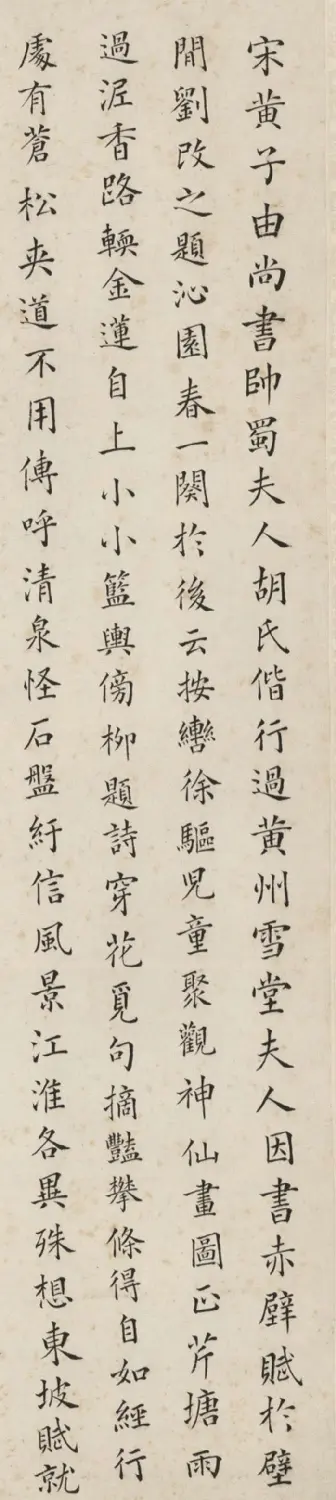 宋黄子由尚書帥蜀夫人胡氏偕行過黄州雪堂夫人因書赤壁賦於壁
間劉改之題沁園春一闋於後云按轡徐驅兒童聚觀神仙畫圖正芹塘雨
過泥香路輭金蓮自上小小籃輿傍柳題詩穿花覓句摘豔攀條得自如經行
處有蒼松夾道不用傳呼清泉怪石盤紆信風景江淮各異殊想東坡賦就